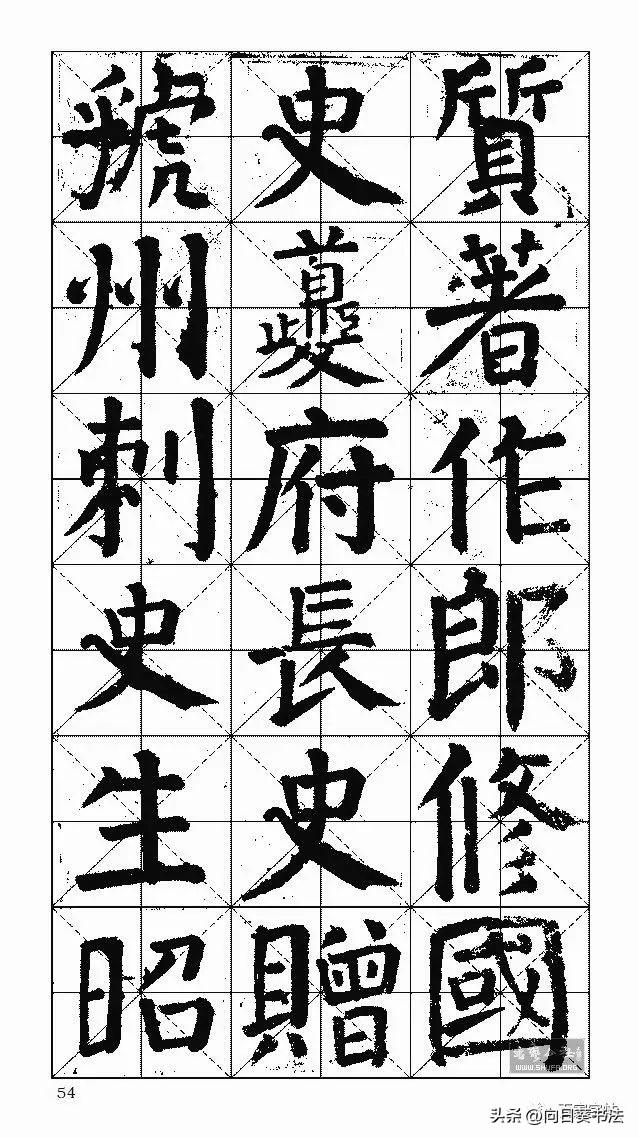 質著作郎修國
史蘷府長史贈
虢州刺史生昭
54
WWW.SHUFA.ORG
头条 @向日葵书法